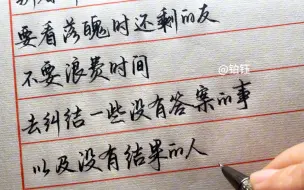 要看落魄时还剩的友
不要浪费时间
@铂钰
去纠结一些没有答案的事
以及没有结果的人